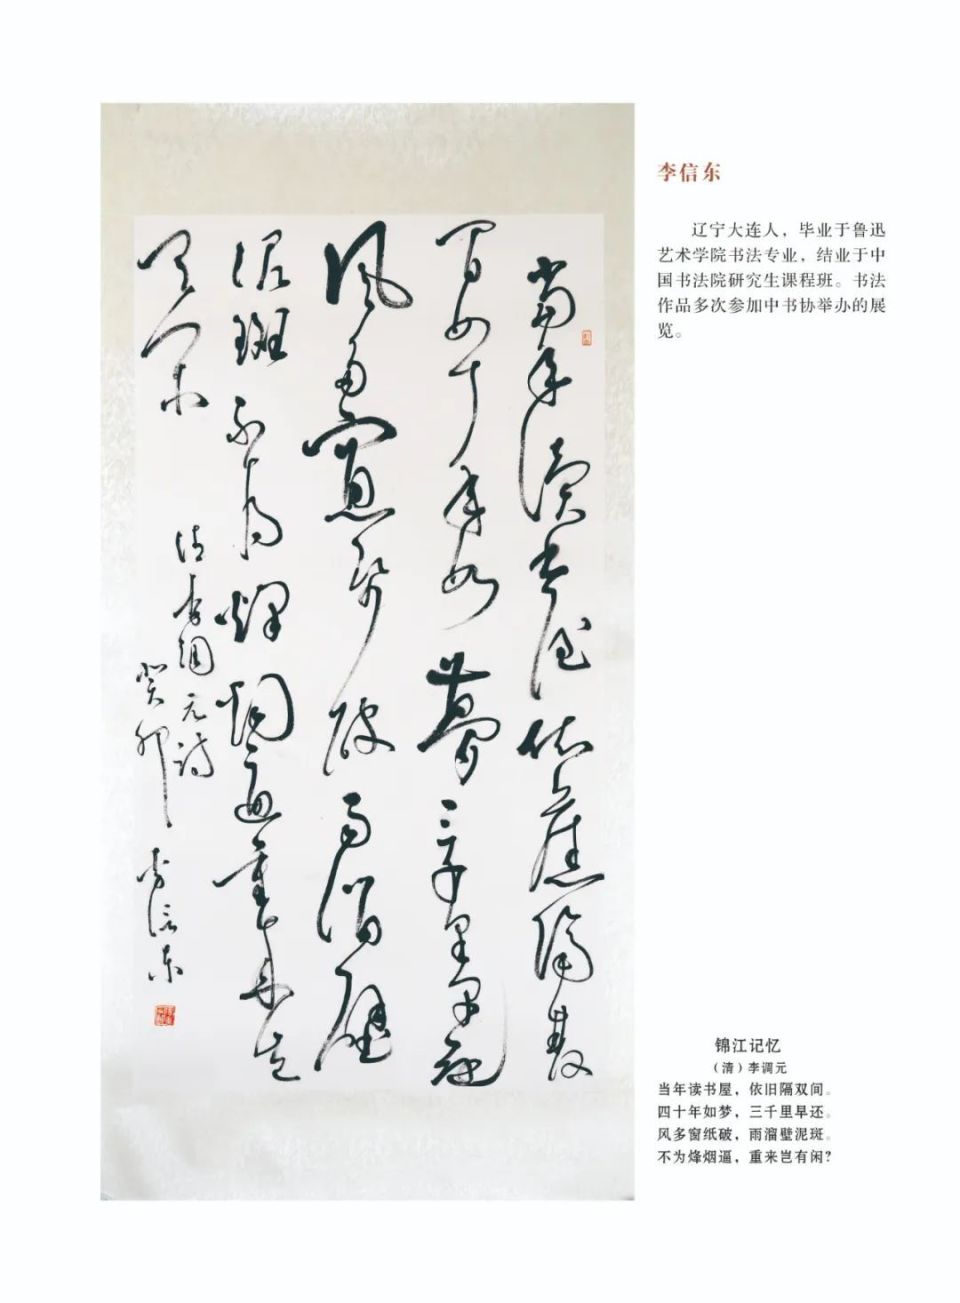 李信东
辽宁大连人，毕业于鲁迅
艺术学院书法专业，结业于中
国书法院研究生课程班。书法
作品多次参加中书协举办的展
览。
當年讀書屋依舊隔
間四十年如夢三千里早還
風多窗紙破雨溜壁
泥斑不為烽烟逼重來豈
清李调元詩
癸卯 李信东
锦江记忆
（清）李调元
当年读书屋，依旧隔双间。
四十年如梦，三千里早还。
风多窗纸破，雨溜壁泥斑。
不为烽烟逼，重来岂有闲？